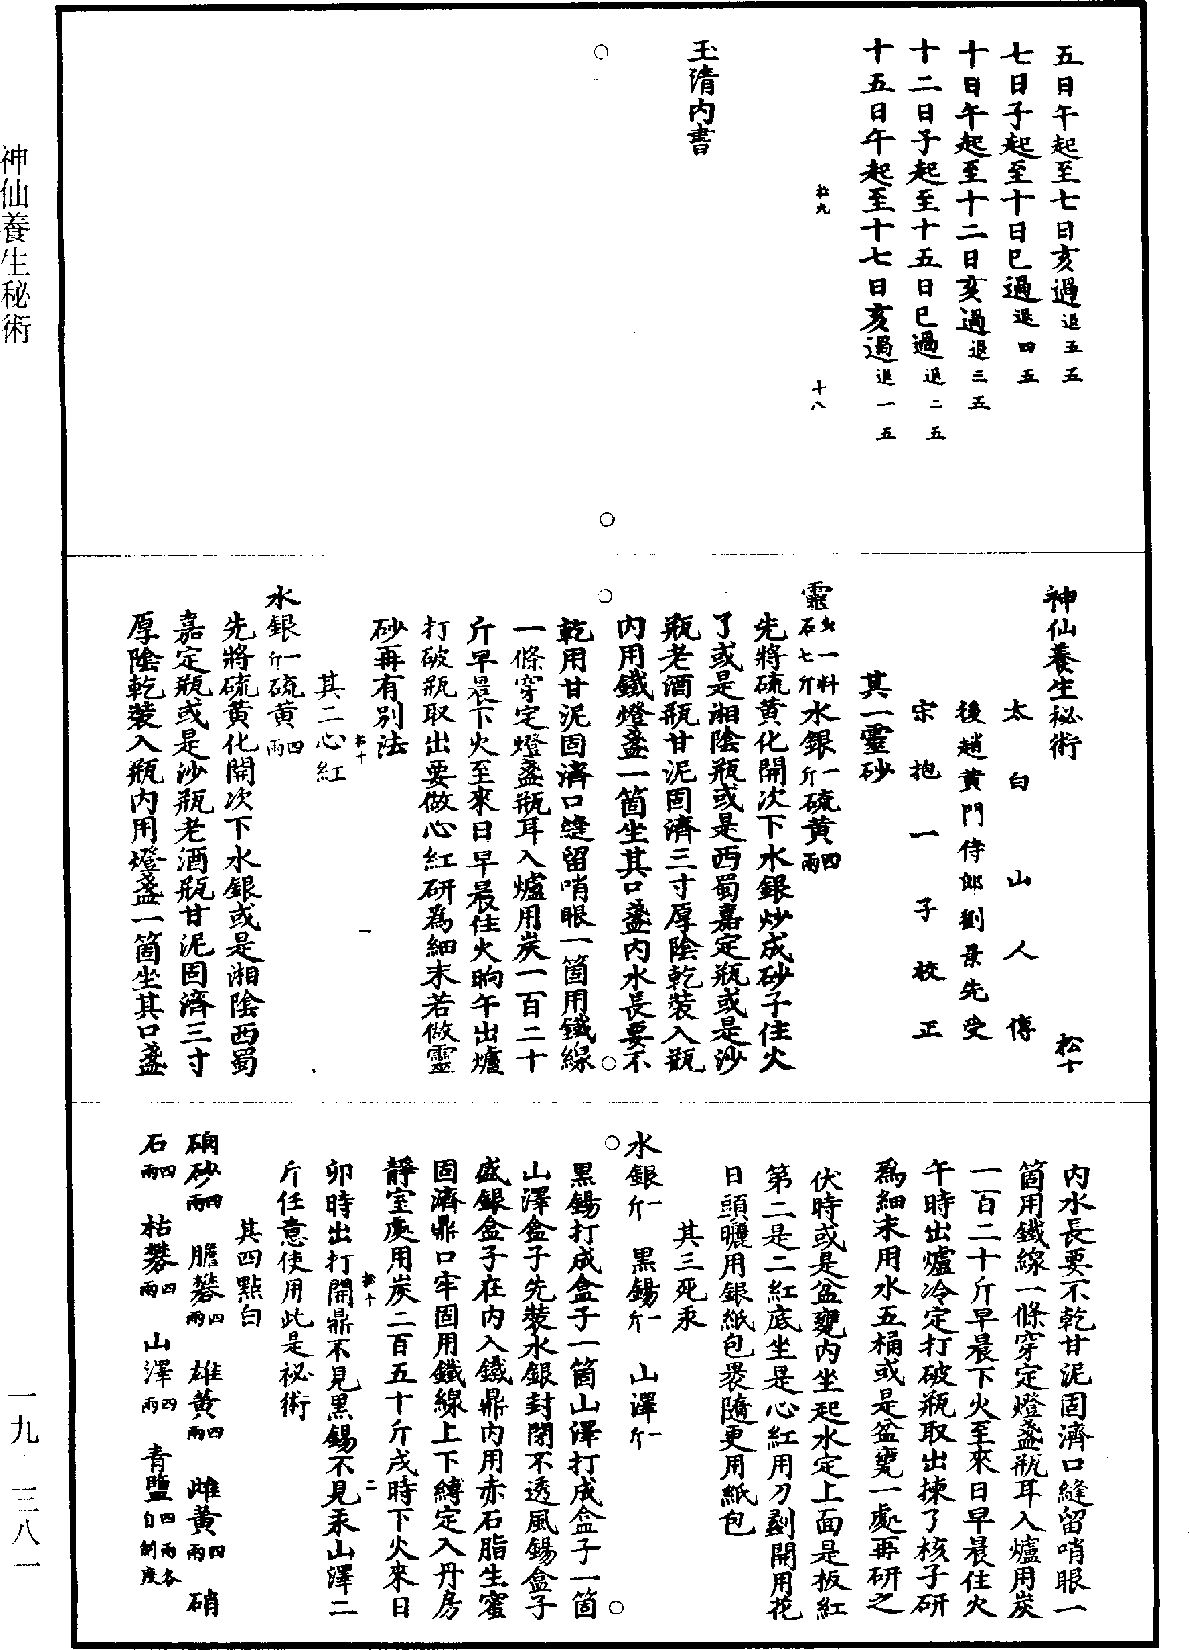 五日午起至七日亥過退五五
七日子起至十日巳過退四五
十日午起至十二日亥過退三五
十二日子起至十五日巳過退二五
十五日午起至十七日亥過退一五
松九 十八
玉清內書
神仙養生秘術 松十
太白山人傳
後趙黃門侍郎劉景先受
宋抱一子校正
其一靈砂
靈一料石七斤水銀一斤硫黃四兩
先將硫黃化開次下水銀炒成砂子住火
了或是湘陰瓶或是西蜀嘉定瓶或是沙
瓶老酒瓶甘泥固濟三寸厚陰乾裝入瓶
內用鐵燈盞一箇坐其口盞內水長要不
乾用甘泥固濟口縫留哨眼一箇用鐵線
一條穿定燈盞瓶耳入爐用炭一百二十
斤早晨下火至來日早晨住火晌午出爐
打破瓶取出要做心紅研為細末若做靈
砂再有別法
松十 一
其二心紅
水銀一斤硫黃四兩
先將硫黃化開次下水銀或是湘陰西蜀
嘉定瓶或是沙瓶老酒瓶甘泥固濟三寸
厚陰乾裝入瓶內用燈盞一箇坐其口盞
內水長要不乾甘泥固濟口縫留哨眼一
箇用鐵線一條穿定燈盞瓶耳入爐用炭
一百二十斤早晨下火至來日早晨住火
午時出爐冷定打破瓶取出揀了核子研
為細末用水五桶或是盆甕一處再研之
伏時或是盆甕內坐起水定上面是板紅
第二是二紅底坐是心紅用刀剔開用花
日頭曬用銀紙包裹隨更用紙包
其三死汞
水銀一斤 黑錫一斤 山澤一斤
黑錫打成盒子一箇山澤打成盒子一箇
山澤盒子先裝水銀封閉不透風錫盒子
盛銀盒子在內入鐵鼎內用赤石脂生蜜
固濟鼎口牢固用鐵線上下縛定入丹房
靜室處用炭二百五十斤戌時下火來日
松十 二
卯時出打開鼎不見黑錫不見汞山澤二
斤任意使用此是祕術
其四點白
硇砂四兩 膽礬四兩 雄黃四兩 雌黃四兩 硝
石四兩 枯礬四兩 山澤四兩 青鹽四兩各自制度
神仙養生秘術
一九 三八一